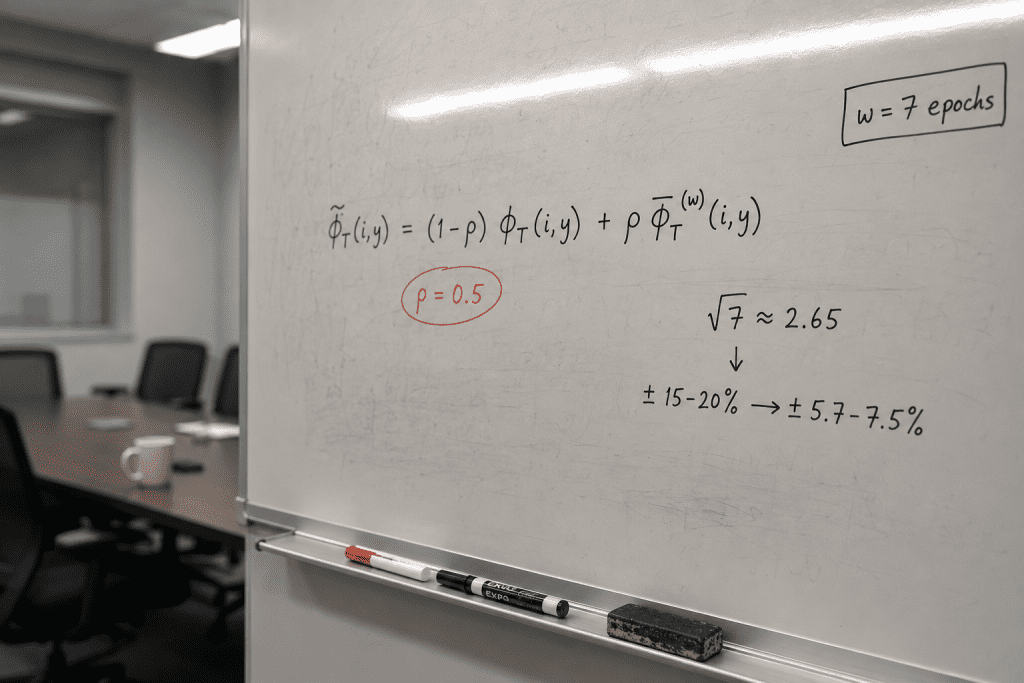 w = 7 epochs
φ̃_T(i,y) = (1-ρ) φ_T(i,y) + ρ φ̄_T^(w)(i,y)
ρ = 0.5
√7 ≈ 2.65
↓
± 15-20% → ± 5.7-7.5%
EXPO